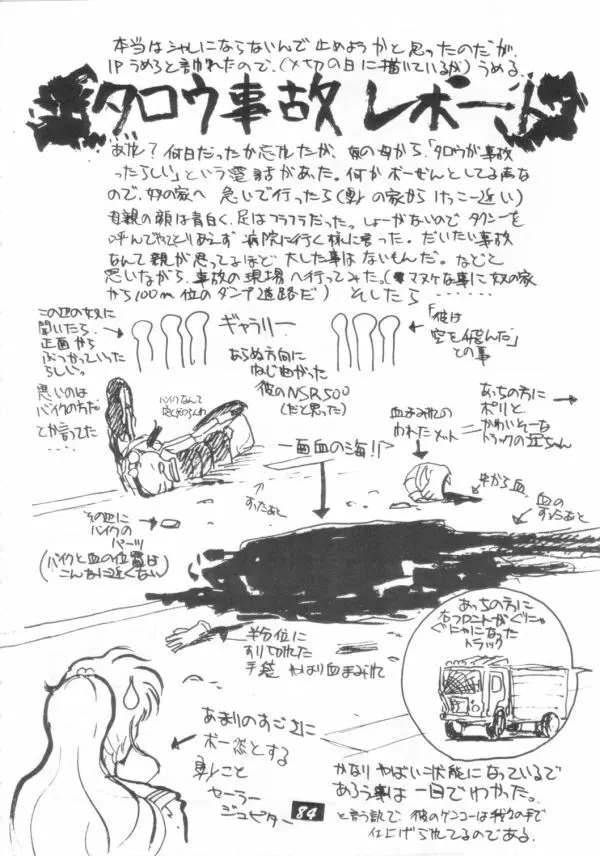 本当はシャレにならないんで止めようかと思ったのだが、
1Pうめろと言われたので、(〆切の日に描いているが)うめる。
タロウ事故レポート
あれ?何日だったか忘れたが、奴の母から、「タロウが事故
ったらしい」という電話があった。何かボーぜんとしてる声な
ので、奴の家へ急いで行ったら(の家からけっこー近い)
母親の顔は青白く、足はフラフラだった。しょーがないのでタクシーを
呼んでやってとりあえず病院に行く様に言った。だいたい事故
なんて親が思ってるほど大した事はないもんだ。などと
思いながら、事故の現場へ行ってみた。(マヌケな事に奴の家
から100m位のダンプ道路だ) そしたら ‥‥‥
この辺の奴に
聞いたら、
正面から
ぶつかっていった
らしい。
悪いのは
バイクの方だ
とか言ってた
‥‥
ギャラリー
「彼は
空を飛んだ」
との事
あらぬ方向に
ねじまがった
彼のNSR500
(だと思った)
バイクなんて
あっちの方に
ポリと、
かわいそーな
トラックの運ちゃん
血まみれの
われたメット
一面血の海!!
中から血
血の
すべりあと
すったあと
その辺に
バイクの
パーツ
(バイクと血の位置は
こんなに近くない)
半分位に
すり切れた
手袋 やはり血まみれ
あっちの方に
右フロントがぐにゃ
ぐにゃになった
トラック
あまりのすごさに
ボー然とする
こと
セーラー
ジュピター
84
かなりやばい状態になっているで
あろう事は一目でわかった。
と言う訳で、彼のゲンコーは我々の手で
仕上げられてるのである。